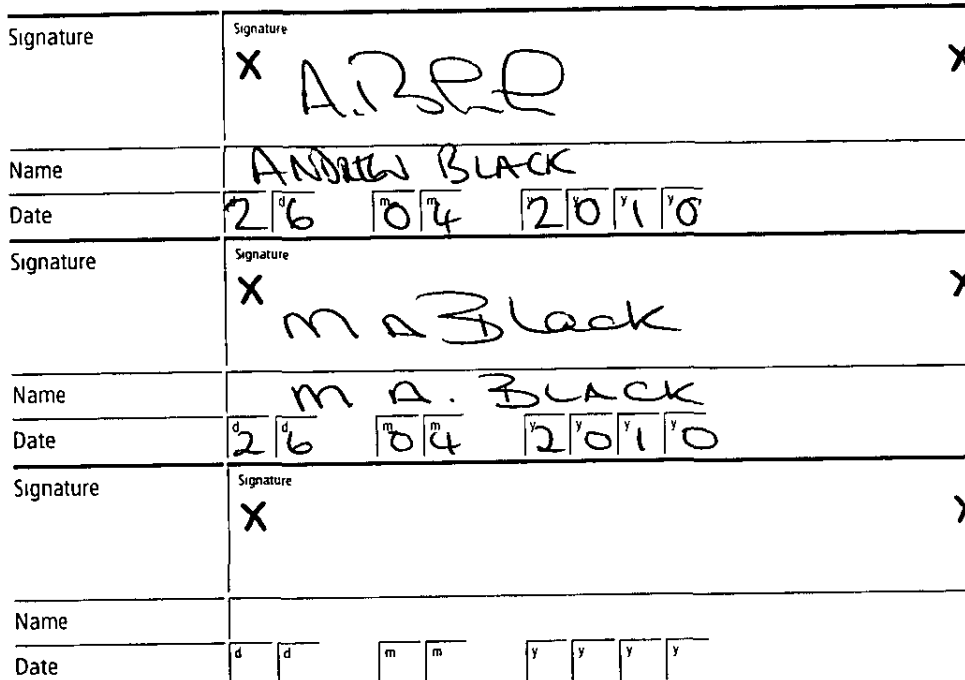 Signature Signature
X X
A.Bl
Name ANDREW BLACK
Date d2 d6 m0 m4 y2 y0 y1 y0
Signature Signature
X X
M A Black
Name M A. BLACK
Date d2 d6 m0 m4 y2 y0 y1 y0
Signature Signature
X X
Name
Date d d m m y y y y